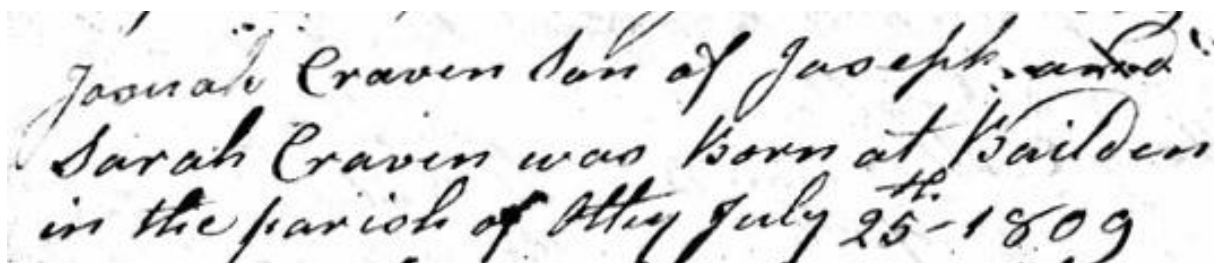 Josuah Craven Son of Joseph and
Sarah Craven was Born at Baildon
in the parish of Otley July 25th. 1809